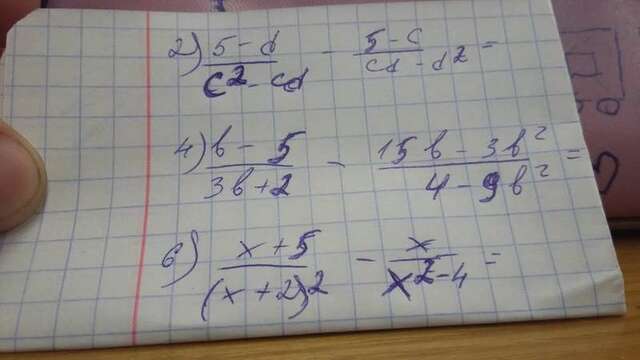 2) (5 - d)/(c² - cd) - (5 - c)/(cd - d²) =
4) (b - 5)/(3b + 2) - (15b - 3b²)/(4 - 9b²) =
6) (x + 5)/(x + 2)² - x/(x² - 4) =